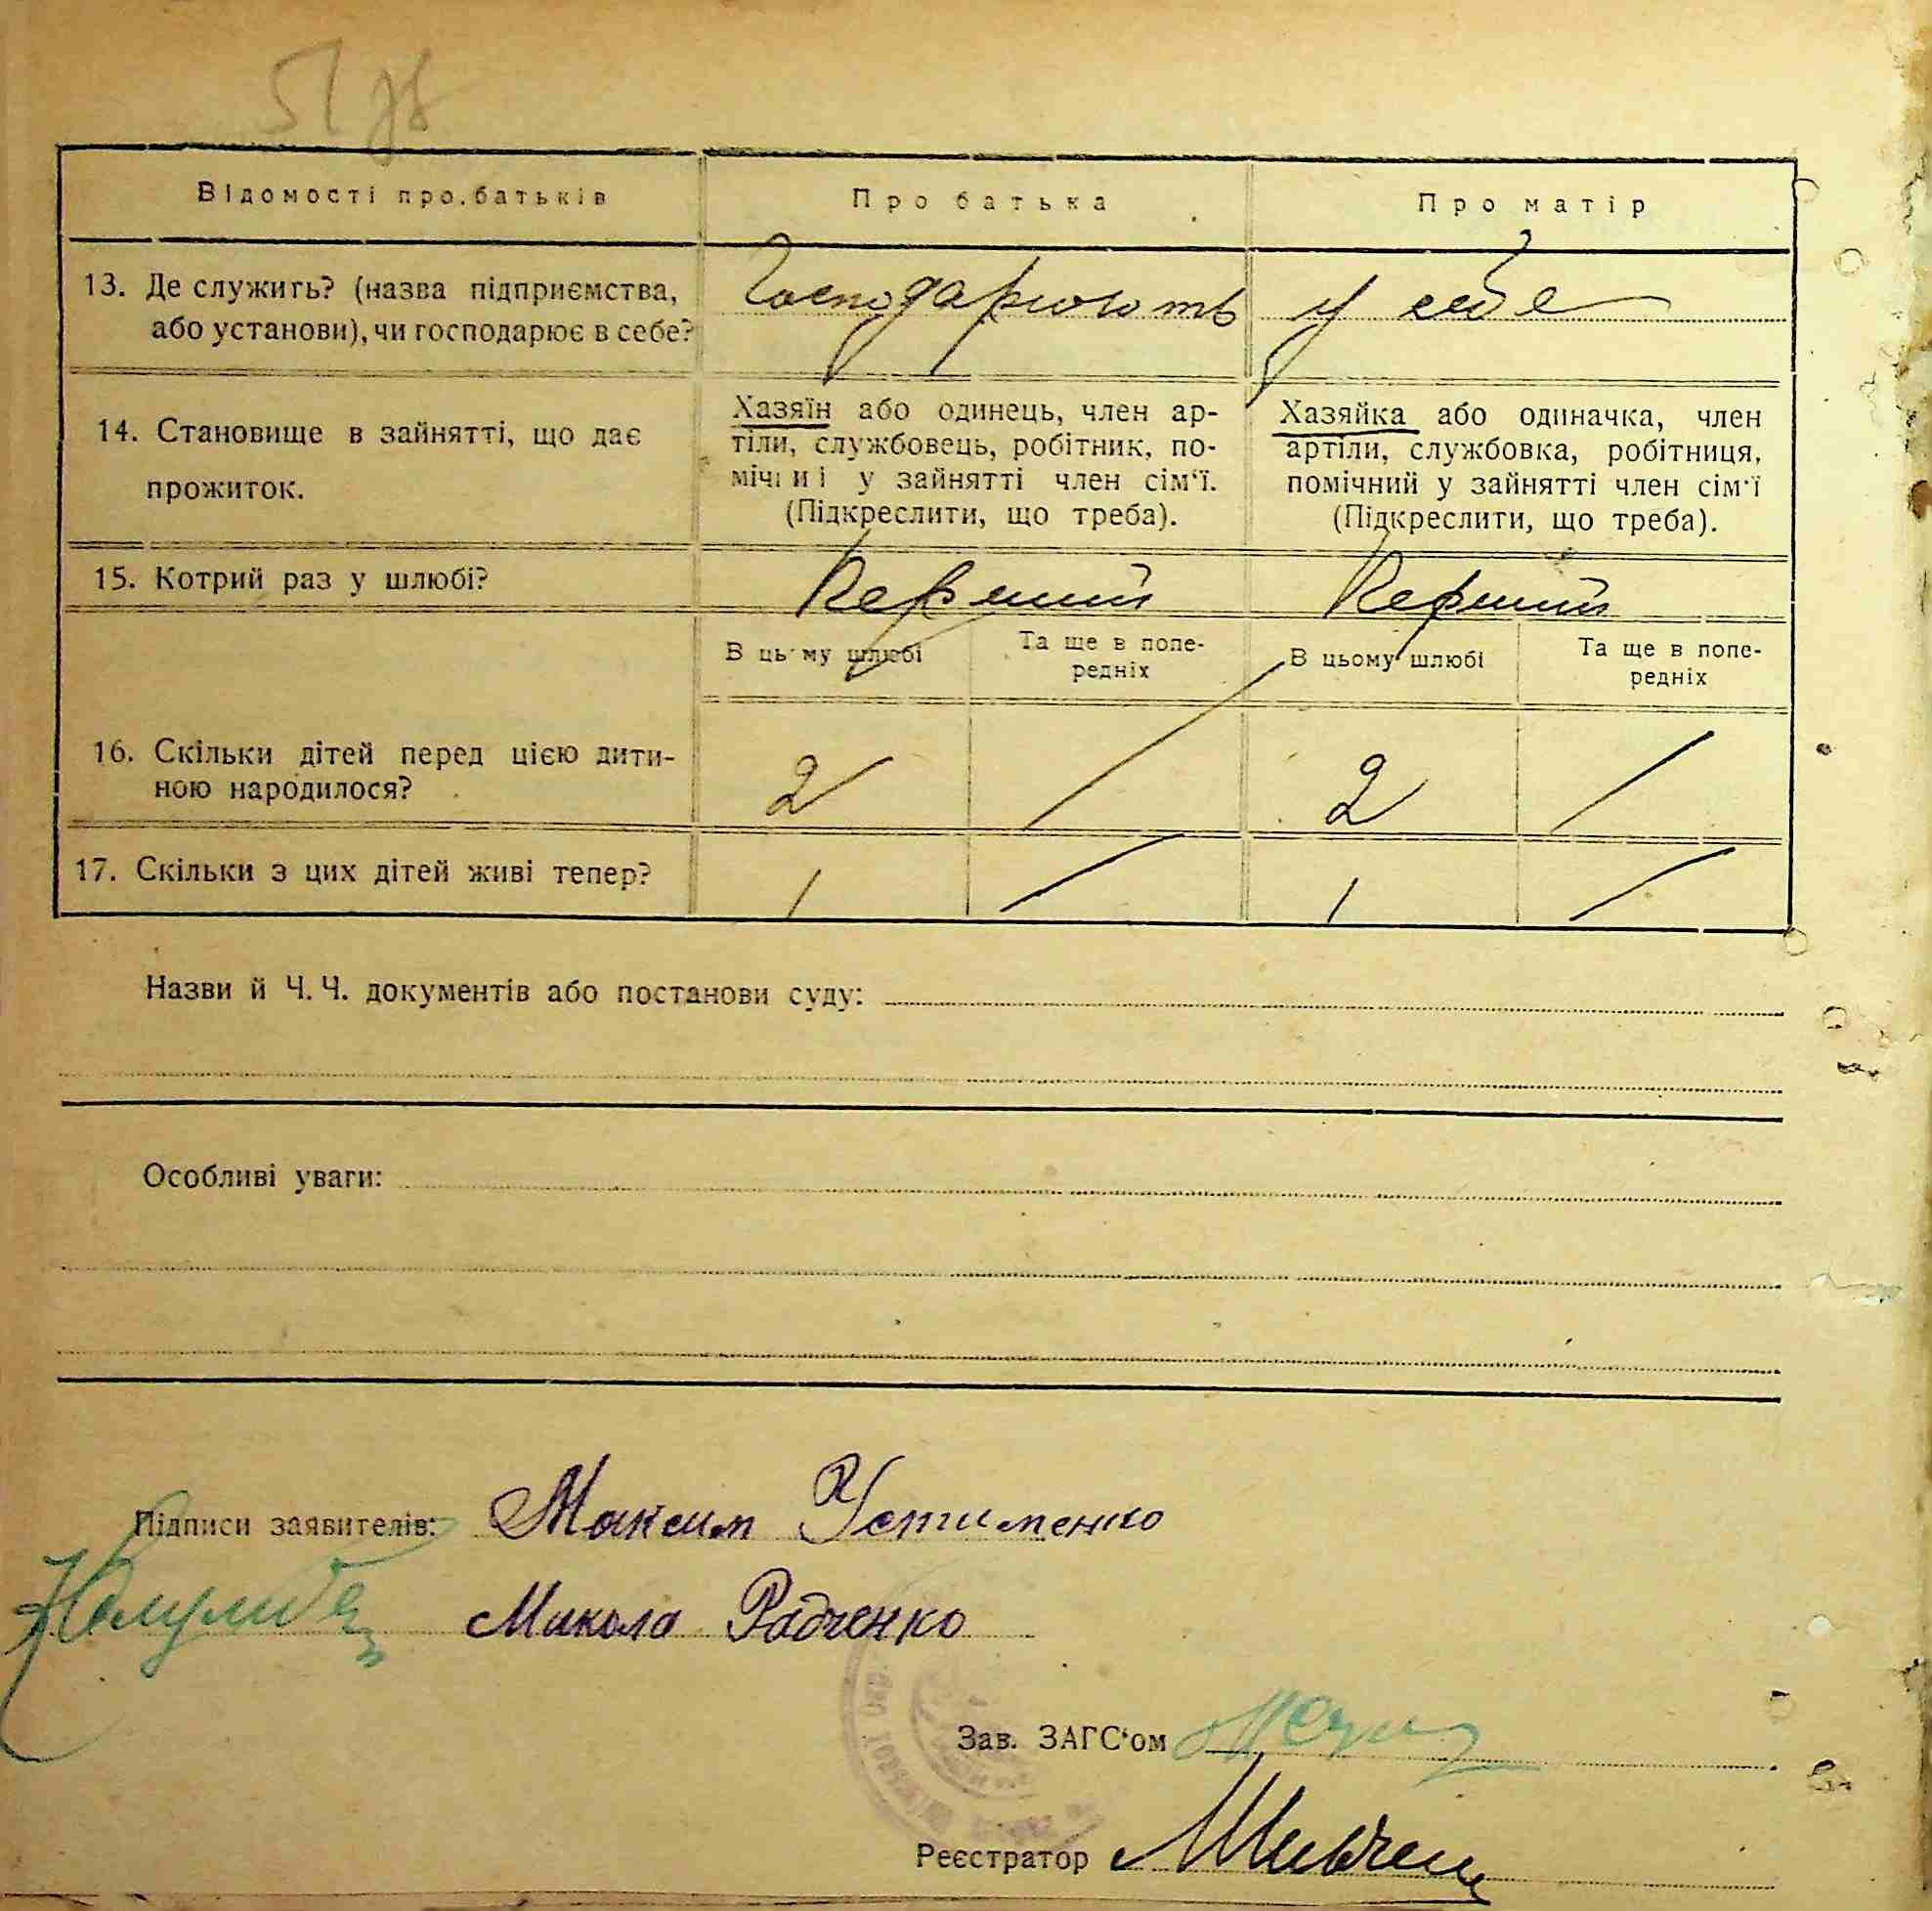 51 зв
Відомості про батьків
Про батька
Про матір
13. Де служить? (назва підприємства,
або установи), чи господарює в себе?
Господарюють у себе
14. Становище в зайнятті, що дає
прожиток.
Хазяїн або одинець, член ар-
тіли, службовець, робітник, по-
мічниі у зайнятті член сім'ї.
(Підкреслити, що треба).
Хазяйка або одиначка, член
артіли, службовка, робітниця,
помічний у зайнятті член сім'ї
(Підкреслити, що треба).
15. Котрий раз у шлюбі?
Перший
Перший
В цьому шлюбі
Та ще в попе-
редніх
В цьому шлюбі
Та ще в попе-
редніх
16. Скільки дітей перед цією дити-
ною народилося?
2 / 2 /
17. Скільки з цих дітей живі тепер?
1 / 1 /
Назви й Ч. Ч. документів або постанови суду:
Особливі уваги:
Підписи заявителів: Максим Устименко
Микола Радченко
Зав. ЗАГС'ом
Реєстратор